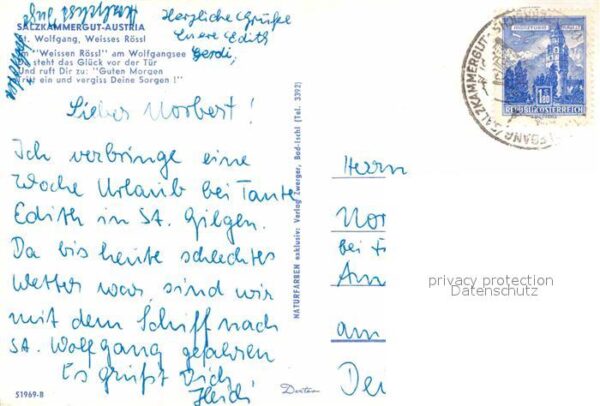 Herzliche Grüße
Eure Edith
Gerdi,
SALZKAMMERGUT-AUSTRIA
St. Wolfgang, Weisses Rössl
"Weissen Rössl" am Wolfgangsee
steht das Glück vor der Tür
Und ruft Dir zu: "Guten Morgen
ein und vergiss Deine Sorgen !"
Lieber Norbert!
Ich verbringe eine
Woche Urlaub bei Tante
Edith in St. Gilgen.
Da bis heute schlechtes
Wetter war, sind wir
mit dem Schiff nach
St. Wolfgang gefahren
Es grüßt Dich
Heidi
51969-B
NATURFARBEN exklusiv: Verlag Zwerger, Bad-Ischl (Tel. 3392)
Herrn
Nor
bei F
Am
am
Der
1.80
REPUBLIK ÖSTERREICH
SALZKAMMERGUT
privacy protection
Datenschutz